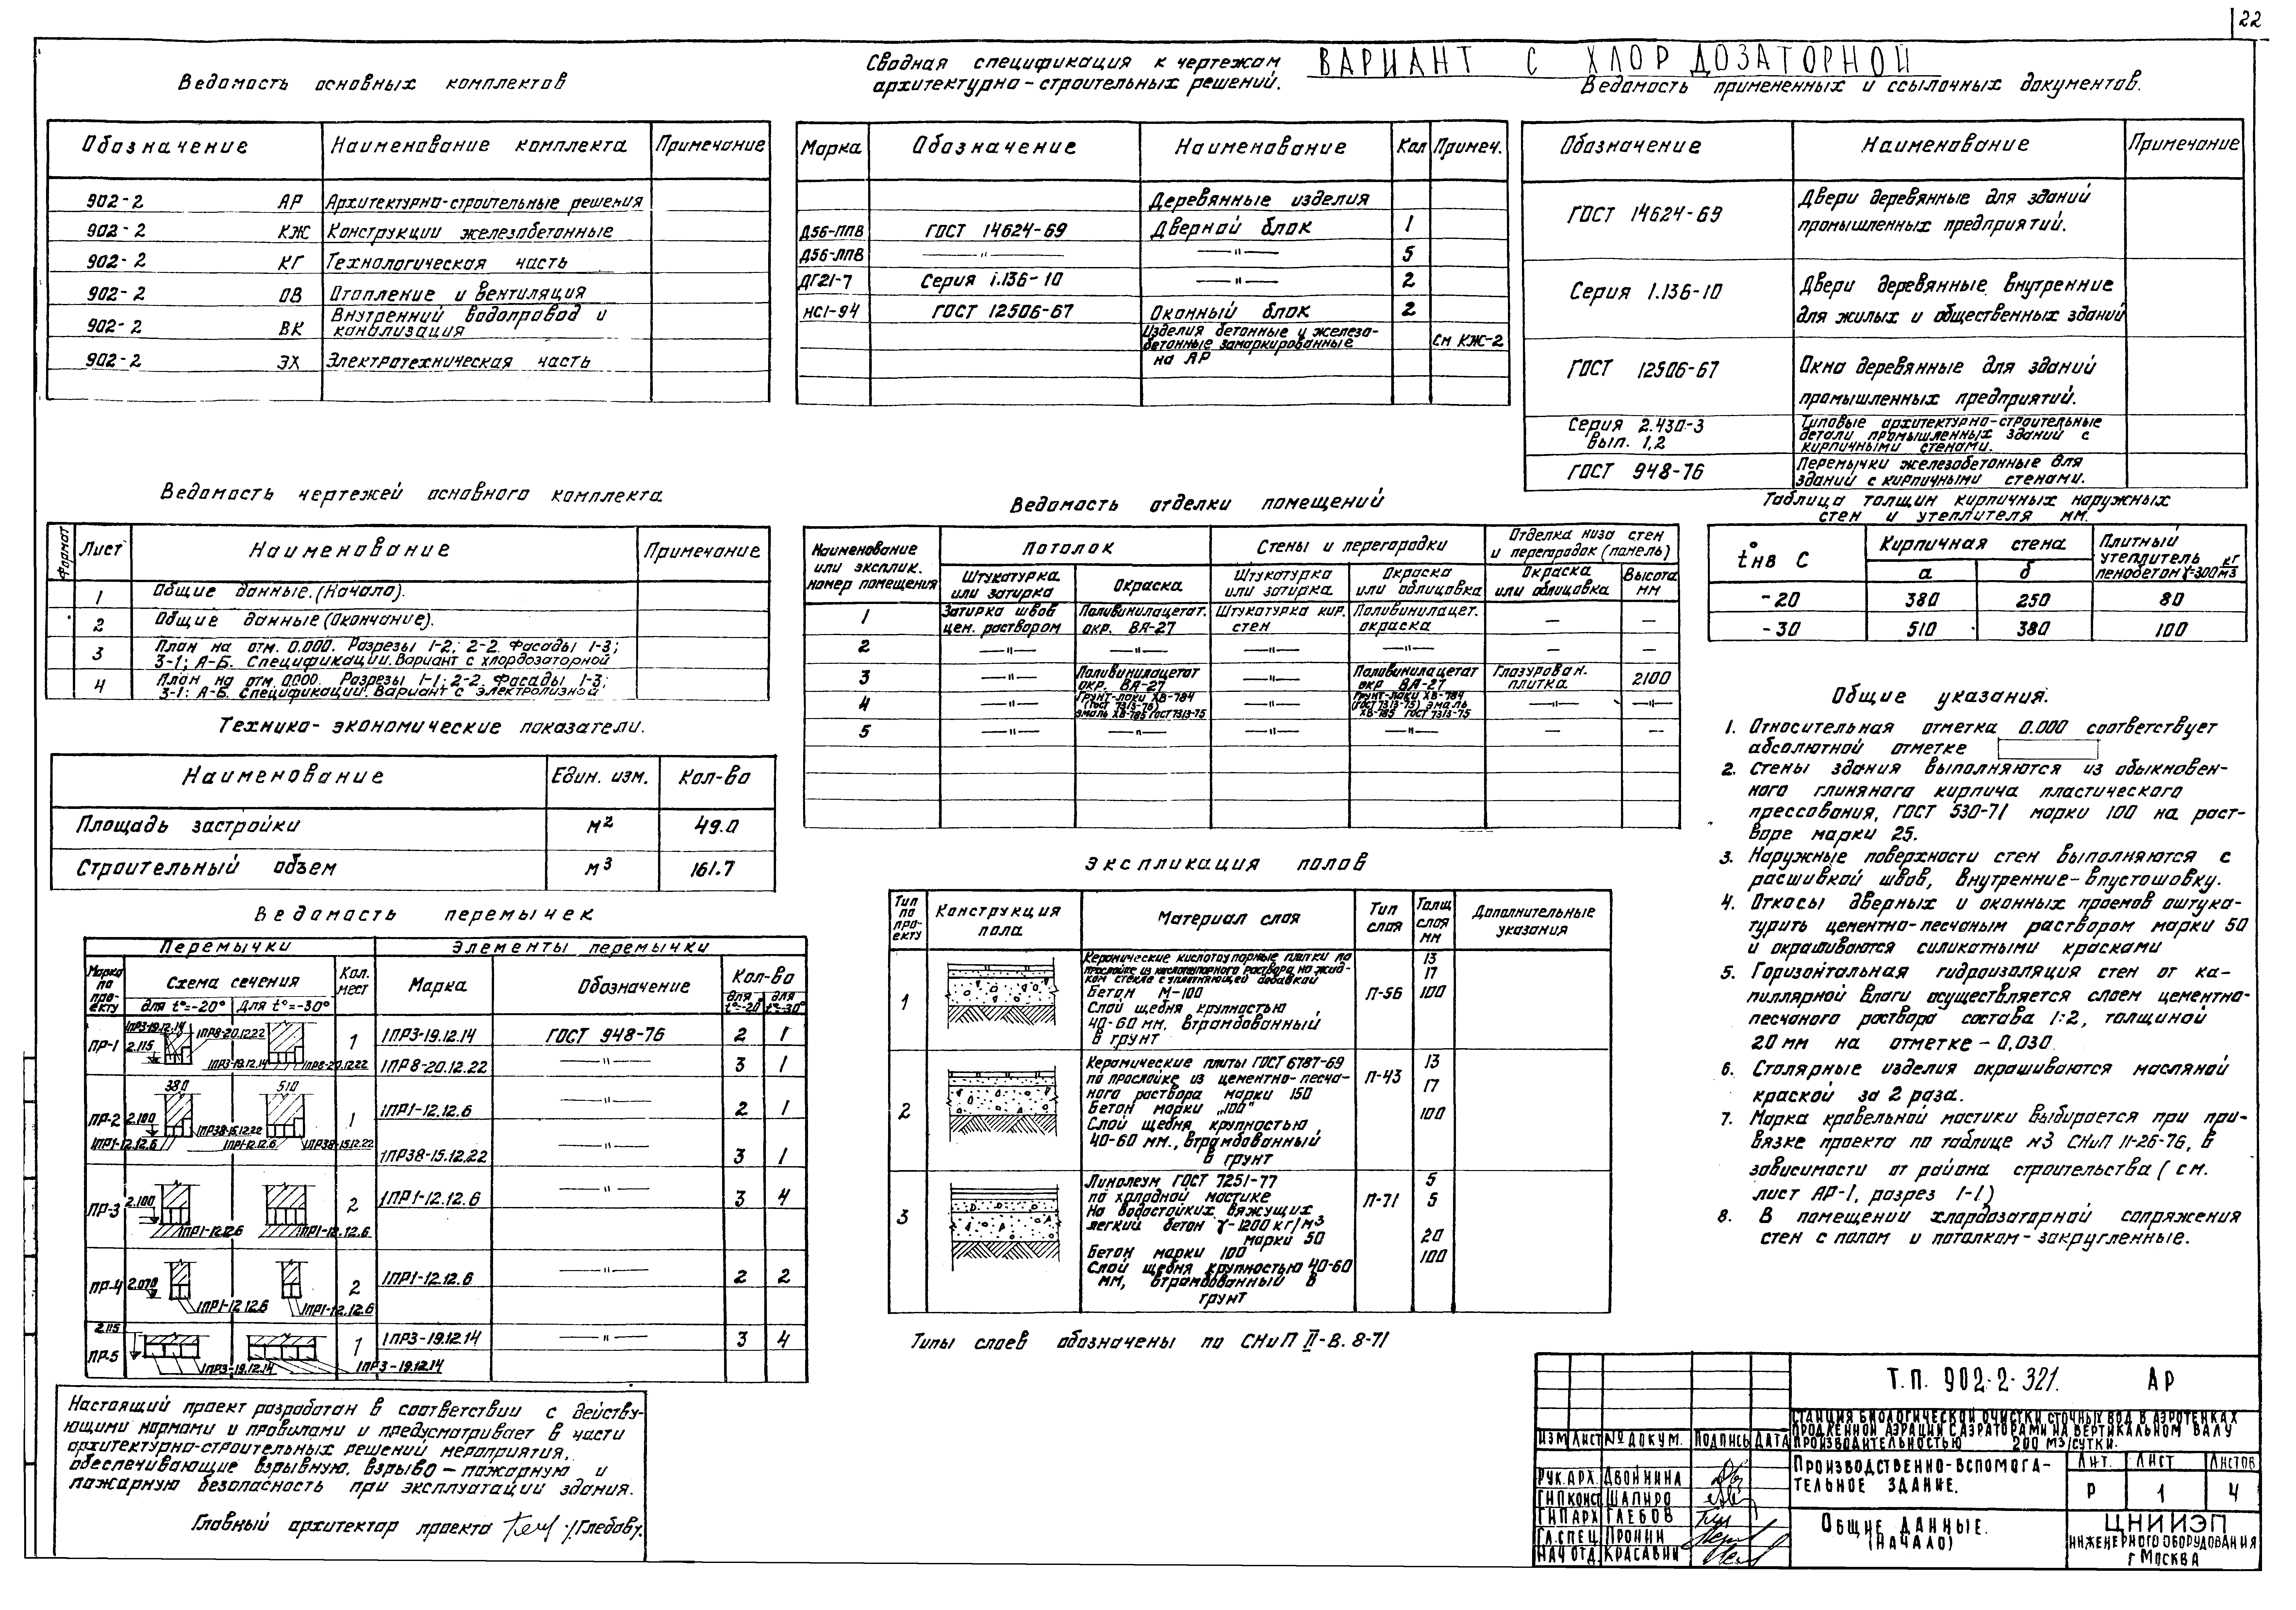 22
ВАРИАНТ С ХЛОРДОЗАТОРНОЙ
Ведомость основных комплектов
Обозначение | Наименование комплекта | Примечание
902-2 АР | Архитектурно-строительные решения
902-2 КЖ | Конструкции железобетонные
902-2 КГ | Технологическая часть
902-2 ОВ | Отопление и вентиляция
902-2 ВК | Внутренний водопровод и
канализация
902-2 ЭХ | Электротехническая часть
Сводная спецификация к чертежам
архитектурно-строительных решений.
Марка | Обозначение | Наименование | Кол | Примеч.
Деревянные изделия
Д56-ППВ | ГОСТ 14624-69 | Дверной блок | 1
Д56-ЛПВ | —"— | —"— | 5
ДГ21-7 | Серия 1.136-10 | —"— | 2
НС1-94 | ГОСТ 12506-67 | Оконный блок | 2
Изделия бетонные и железо-
бетонные замаркированные | См КЖ-2
на АР
Ведомость примененных и ссылочных документов.
Обозначение | Наименование | Примечание
ГОСТ 14624-69 | Двери деревянные для зданий
промышленных предприятий.
Серия 1.136-10 | Двери деревянные внутренние
для жилых и общественных зданий
ГОСТ 12506-67 | Окна деревянные для зданий
промышленных предприятий.
Серия 2.430-3 | Типовые архитектурно-строительные
вып. 1,2 | детали промышленных зданий с
кирпичными стенами.
ГОСТ 948-76 | Перемычки железобетонные для
зданий с кирпичными стенами.
Ведомость чертежей основного комплекта
Формат | Лист | Наименование | Примечание
1 | Общие данные. (Начало).
2 | Общие данные (Окончание).
3 | План на отм. 0.000. Разрезы 1-2; 2-2. Фасады 1-3;
3-1; А-Б. Спецификации. Вариант с хлордозаторной
4 | План на отм. 0.000. Разрезы 1-1; 2-2. Фасады 1-3;
3-1; А-Б. Спецификации. Вариант с электролизной
Технико-экономические показатели.
Наименование | Един. изм. | Кол-во
Площадь застройки | м2 | 49.0
Строительный объем | м3 | 161.7
Ведомость отделки помещений
Наименование или эксплик. номер помещения | Потолок | Стены и перегородки | Отделка низа стен и перегородок (панель)
Штукатурка или затирка | Окраска | Штукатурка или затирка | Окраска или облицовка | Окраска или облицовка | Высота мм
1 | Затирка швов | Поливинилацетат. | Штукатурка кир. | Поливинилацет. | — | —
цем. раствором | окр. ВА-27 | стен | окраска
2 | —"— | —"— | —"— | — | —
3 | —"— | Поливинилацетат окр. ВА-27 | —"— | Поливинилацетат окр ВА-27 | Глазурован. плитка | 2100
4 | —"— | Грунт-лаки ХВ-784 (ГОСТ 7313-75) эмаль ХВ-785 ГОСТ 7313-75 | —"— | Грунт-лаки ХВ-784 (ГОСТ 7313-75) эмаль ХВ-785 ГОСТ 7313-75 | —"— | —"—
5 | —"— | —"— | —"— | —"— | — | —
Таблица толщин кирпичных наружных
стен и утеплителя мм.
t°нв С | Кирпичная стена | Плитный утеплитель пенобетон γ-300 кг/м3
а | б
-20 | 380 | 250 | 80
-30 | 510 | 380 | 100
Ведомость перемычек
Перемычки | Элементы перемычки
Марка по проекту | Схема сечения | Кол. мест | Марка | Обозначение | Кол-во
для t°=-20° | Для t°=-30° | для t°=-20° | для t°=-30°
ПР-1 | 2.115 | 1ПР3-19.12.14 | 1ПР8-20.12.22 | 1ПР3-19.12.14 | 1ПР8-20.12.22 | 1 | 1ПР3-19.12.14 | ГОСТ 948-76 | 2 | 1
1ПР8-20.12.22 | —"— | 3 | 1
ПР-2 | 380 | 510 | 2.100 | 1ПР38-15.12.22 | 1ПР1-12.12.6 | 1ПР1-12.12.6 | 1ПР38-15.12.22 | 1 | 1ПР1-12.12.6 | —"— | 2 | 1
1ПР38-15.12.22 | —"— | 3 | 1
ПР-3 | 2.100 | 1ПР1-12.12.6 | 1ПР1-12.12.6 | 2 | 1ПР1-12.12.6 | —"— | 3 | 4
ПР-4 | 2.070 | 1ПР1-12.12.6 | 1ПР1-12.12.6 | 2 | 1ПР1-12.12.6 | —"— | 2 | 2
ПР-5 | 2.115 | 1ПР3-19.12.14 | 1ПР3-19.12.14 | 1 | 1ПР3-19.12.14 | —"— | 3 | 4
Экспликация полов
Тип по проекту | Конструкция пола | Материал слоя | Тип слоя | Толщ слоя мм | Дополнительные указания
1 | П-56
Керамические кислотоупорные плитки по | 13
прослойке из кислотоупорного раствора на жид- | 17
ком стекле с уплотняющей добавкой
Бетон М-100 | 100
Слой щебня крупностью
40-60 мм, втрамбованный
в грунт
2 | П-43
Керамические плиты ГОСТ 6787-69 | 13
по прослойке из цементно-песча- | 17
ного раствора марки 150
Бетон марки „100" | 100
Слой щебня крупностью
40-60 мм., втрамбованный
в грунт
3 | П-71
Линолеум ГОСТ 7251-77 | 5
по холодной мастике | 5
На водостойких вяжущих
легкий бетон γ-1200 кг/м3
марки 50 | 20
Бетон марки 100 | 100
Слой щебня крупностью 40-60
мм, втрамбованный в
грунт
Типы слоев обозначены по СНиП II-В. 8-71
Общие указания.
1. Относительная отметка 0.000 соответствует
абсолютной отметке
2. Стены здания выполняются из обыкновен-
ного глиняного кирпича пластического
прессования, ГОСТ 530-71 марки 100 на раст-
воре марки 25.
3. Наружные поверхности стен выполняются с
расшивкой швов, внутренние-впустошовку.
4. Откосы дверных и оконных проемов оштука-
турить цементно-песчаным раствором марки 50
и окрашиваются силикатными красками
5. Горизонтальная гидроизоляция стен от ка-
пиллярной влаги осуществляется слоем цементно-
песчаного раствора состава 1:2, толщиной
20 мм на отметке -0,030.
6. Столярные изделия окрашиваются масляной
краской за 2 раза.
7. Марка кровельной мастики выбирается при при-
вязке проекта по таблице м3 СНиП II-26-76, в
зависимости от района строительства (см.
лист АР-1, разрез 1-1)
8. В помещении хлордозаторной сопряжения
стен с полом и потолком-закругленные.
Настоящий проект разработан в соответствии с действу-
ющими нормами и правилами и предусматривает в части
архитектурно-строительных решений мероприятия,
обеспечивающие взрывную, взрыво-пожарную и
пожарную безопасность при эксплуатации здания.
Главный архитектор проекта /Глебов/.
Т.П. 902-2-321. АР
СТАНЦИЯ БИОЛОГИЧЕСКОЙ ОЧИСТКИ СТОЧНЫХ ВОД В АЭРОТЕНКАХ
ПРОДЛЕННОЙ АЭРАЦИИ С АЭРАТОРАМИ НА ВЕРТИКАЛЬНОМ ВАЛУ
ПРОИЗВОДИТЕЛЬНОСТЬЮ 200 М3/СУТКИ.
ИЗМ ЛИСТ № ДОКУМ. ПОДПИСЬ ДАТА
РУК.АРХ. ДВОЙНИНА
ГИП КОНСТ ШАПИРО
ГИП АРХ ГЛЕБОВ
ГЛ.СПЕЦ. ПРОНИН
НАЧ ОТД. КРАСАВИН
ПРОИЗВОДСТВЕННО-ВСПОМОГА-
ТЕЛЬНОЕ ЗДАНИЕ.
ЛИТ. ЛИСТ ЛИСТОВ
Р 1 4
ОБЩИЕ ДАННЫЕ.
(НАЧАЛО)
ЦНИИЭП
ИНЖЕНЕРНОГО ОБОРУДОВАНИЯ
Г МОСКВА